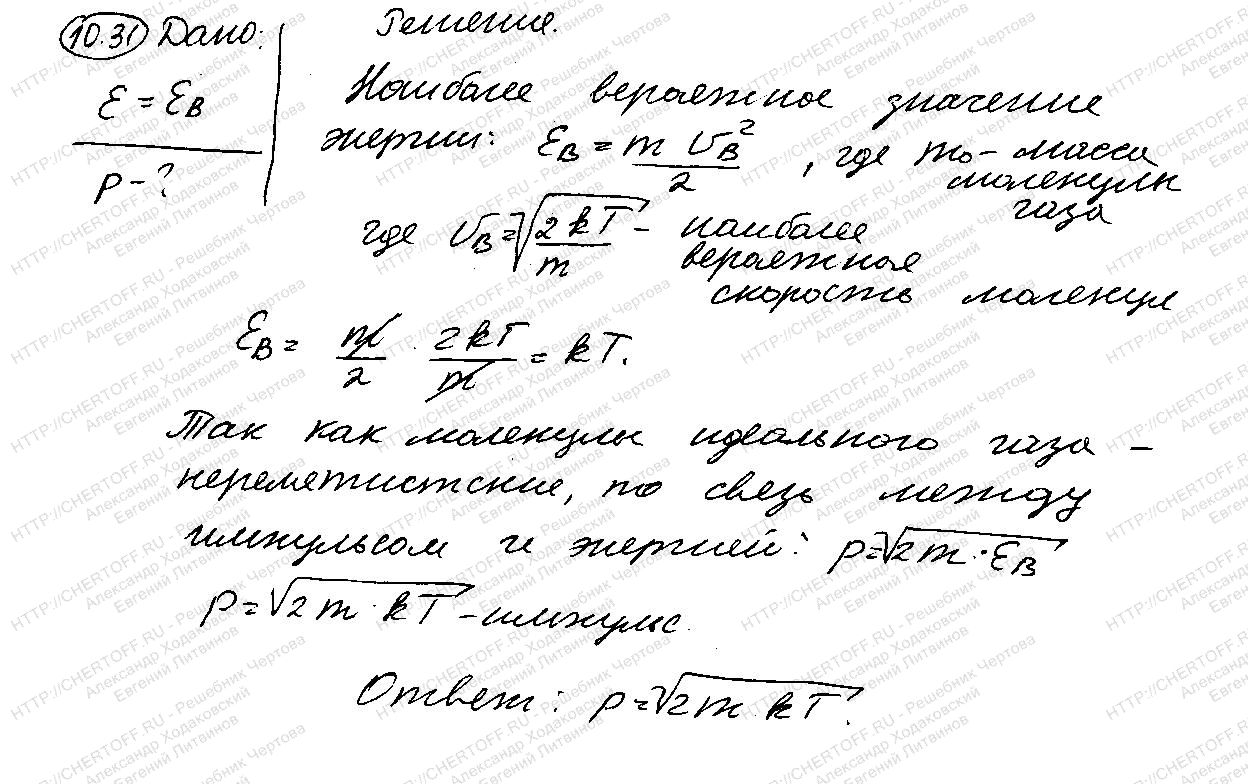 10.31 Дано: Решение.
ε = εв
p - ?
Наиболее вероятное значение
энергии: εв = m υв² / 2 , где m₀ - масса
молекулы
газа
где υв = √(2kT / m) - наиболее
вероятная
скорость молекул
εв = m/2 · 2kT/m = kT.
Так как молекулы идеального газа -
нерелятистские, то связь между
импульсом и энергией: p = √(2m · εв)
p = √(2m · kT) - импульс.
Ответ: p = √(2m kT).
HTTP://CHERTOFF.RU - Решебник Чертова
Александр Ходаковский
Евгений Литвинов